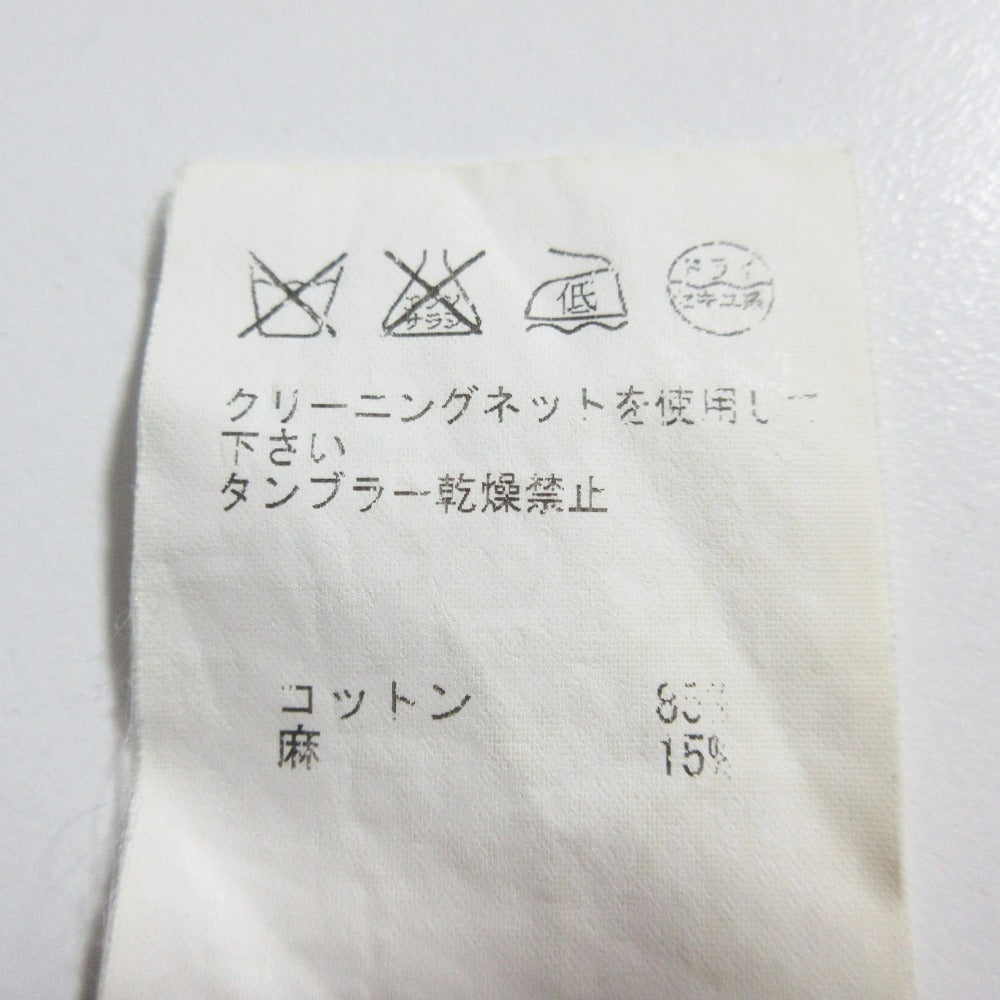 エンソ
サラシ
低
ドライ
セキユ系
クリーニングネットを使用して
下さい
タンブラー乾燥禁止
コットン 85%
麻 15%